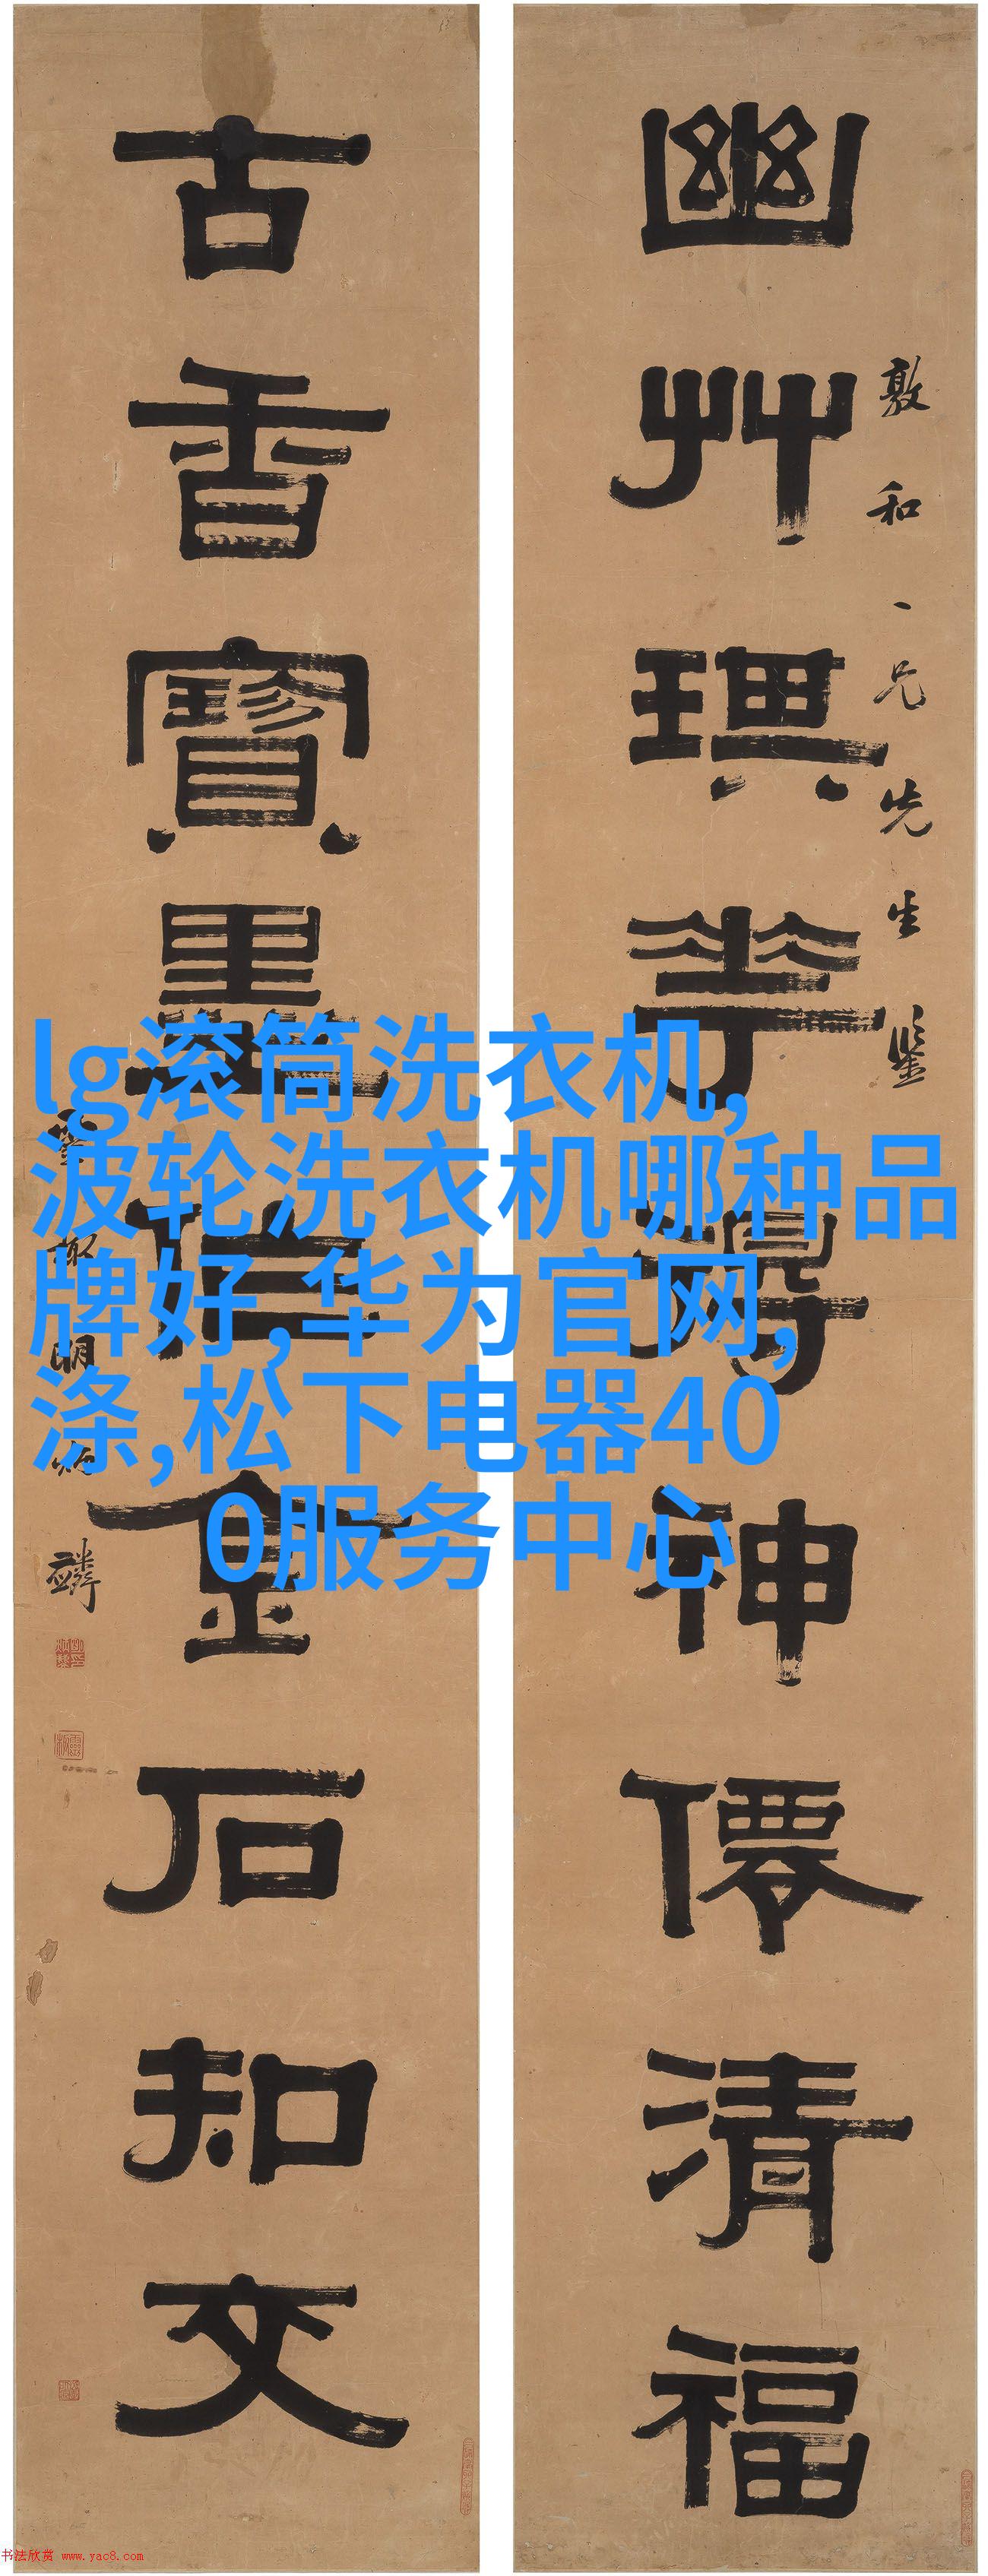 幽艸琪花得神僊清福
敦和一兄先生鉴
古香寶墨結金石知交
lg滚筒洗衣机,
波轮洗衣机哪种品
牌好,华为官网,
涤,松下电器40
0服务中心
书法欣赏 www.yac8.com